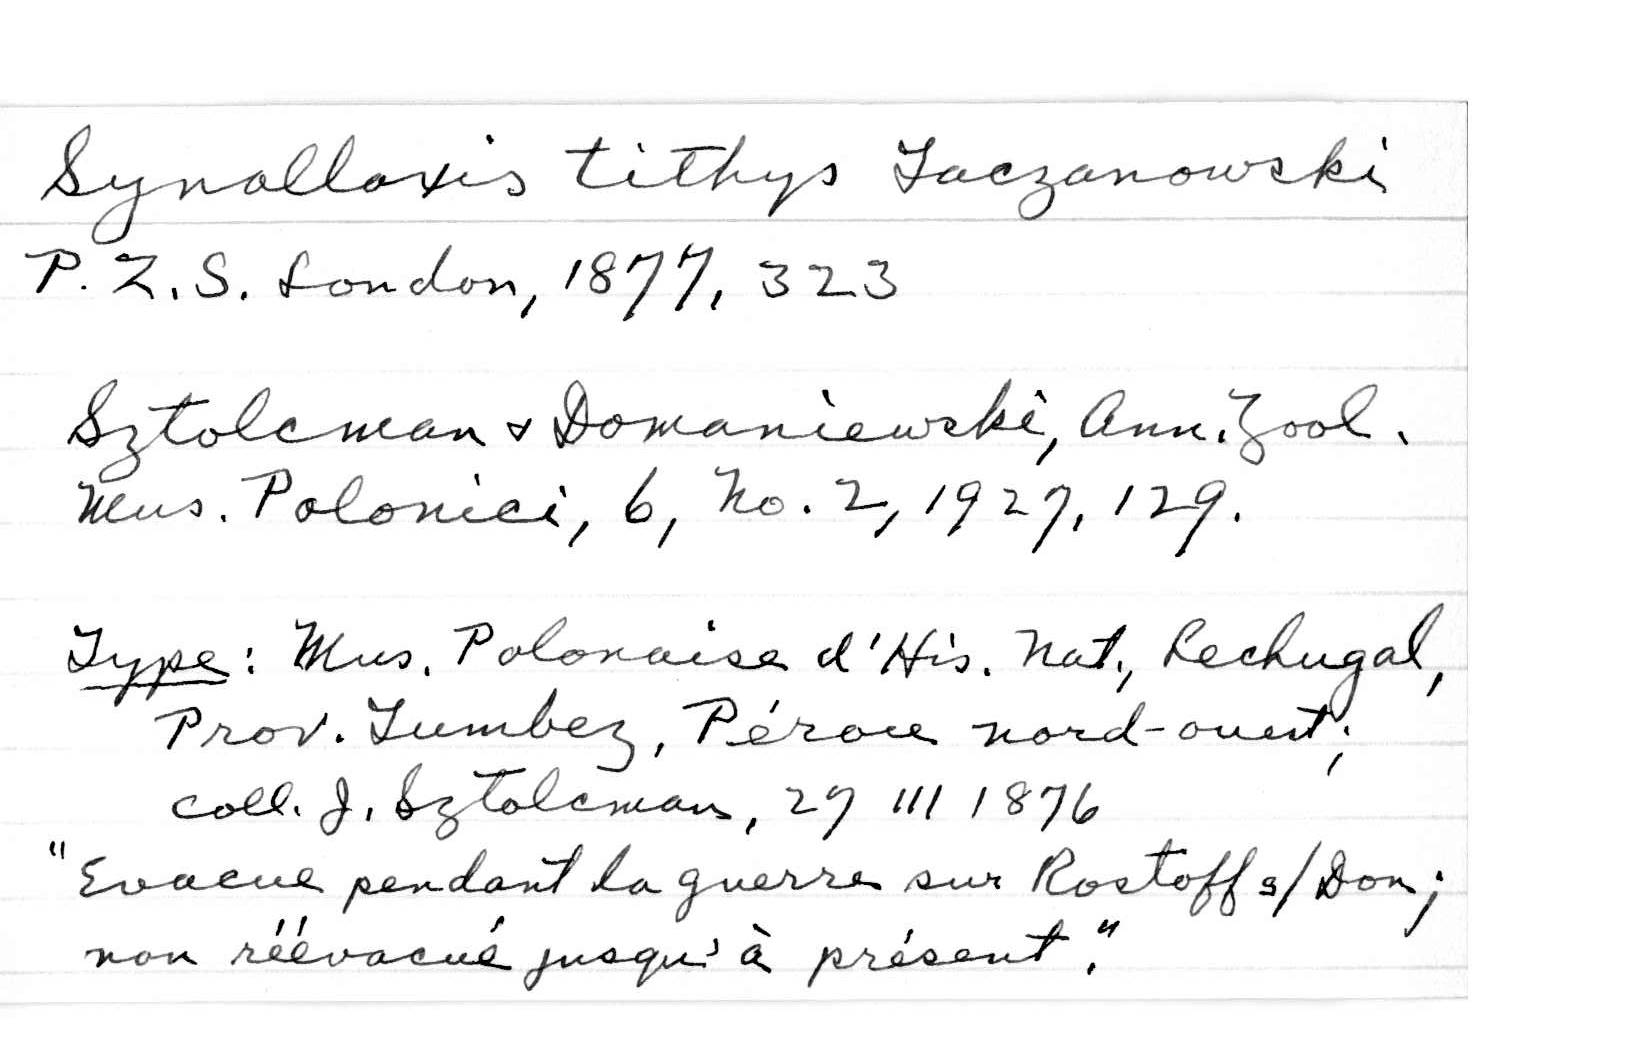 Synallaxis tithys Taczanowski
P. Z. S. London, 1877, 323
Sztolcman & Domaniewski, Ann. Zool.
Mus. Polonici, 6, No. 2, 1927, 129.
Type: Mus. Polonaise d'His. Nat., Lechugal,
Prov. Tumbez, Pérou nord-ouest;
coll. J. Sztolcman, 27 III 1876
"Evacue pendant la guerre sur Rostoff s/Don;
non réévacué jusqu'à présent."